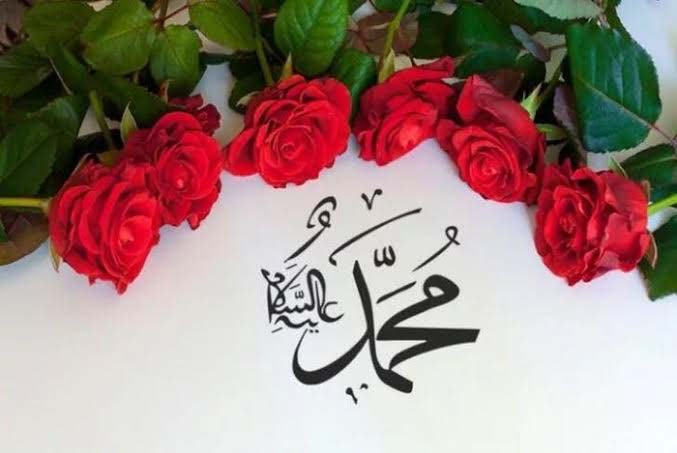 مُحَمَّد عليه السَّلام